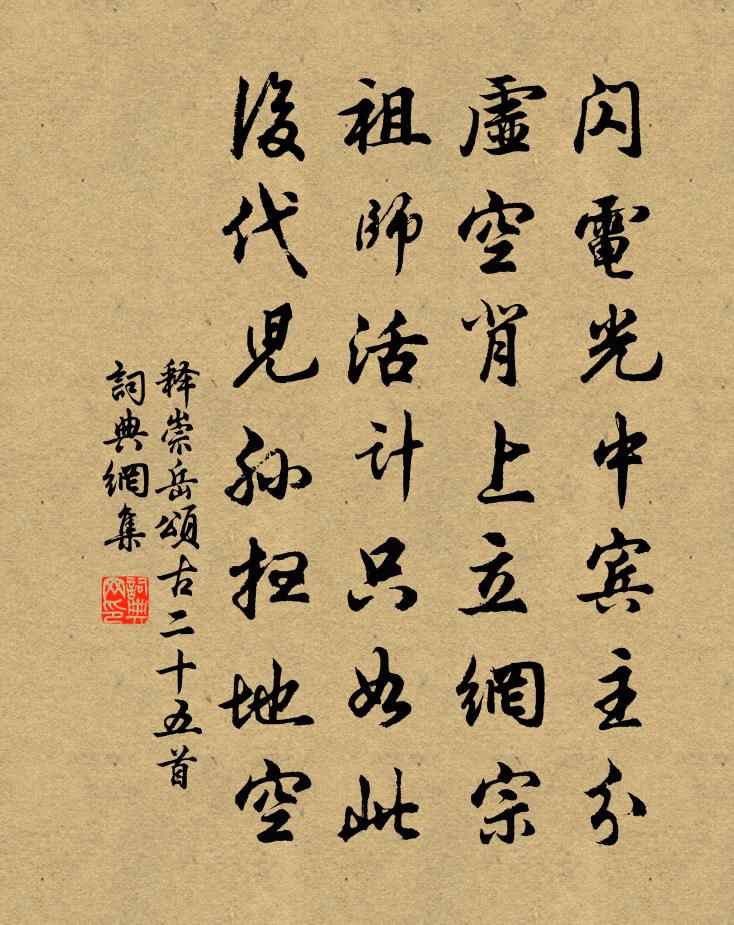 閃電光中宾主分
虛空背上立網宗
祖師活計只如此
後代児孙扫地空
释崇岳頌古二十五首
詞典網集
詞典网印